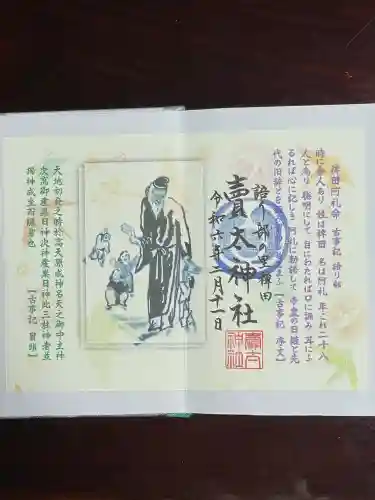 稗田阿礼命 古事記 語り部
時に舎人あり 姓は稗田 名は阿礼 年これ二十八
人と為り 聡明にして 目にわたれば口に誦み 耳にふ
るれば心に記しき 阿礼に勅語して 帝皇の日継と先
代の旧辞とを
【古事記 序文】
語り部の里稗田
賣太神社
令和六年二月十一日
賣太
神社
天地初發之時於高天原成神名天之御中主神
次高御産巣日神次神産巣日神此三柱神者並
獨神成坐而隠身也 【古事記 冒頭】